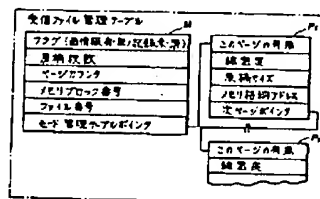 受信ファイル管理テーブル
M
P1
フラグ(画情報有・無)/記録未・済)
原稿枚数
ページカウンタ
メモリブロック番号
ファイル番号
モード管理テーブルポインタ
このページの有無
線密度
原稿サイズ
メモリ格納アドレス
次ページポインタ
このページの有無
線密度